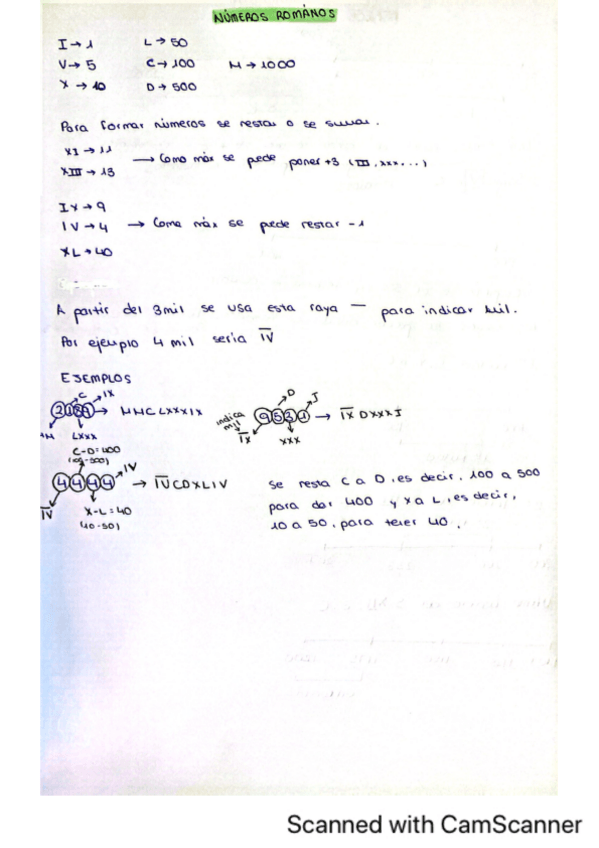 NÚMEROS ROMANOS
I → 1 L → 50
V → 5 C → 100 M → 1000
X → 10 D → 500
Para formar números se restan o se suman.
XI → 11
XIII → 13 → Como máx se pede poner +3 (III, xxx...)
IX → 9
IV → 4 → Como máx se pede restar -1
XL → 40
A partir del 3mil se usa esta raya — para indicar mil.
Por ejemplo 4 mil seria I̅V̅
EJEMPLOS
C IX
2189 → MMCLXXXIX
MM LXXX
D I
indica mil 9531 → I̅X̅DXXXI
I̅X̅ XXX
C-D=400
(100-500) IV
4444 → I̅V̅CDXLIV
I̅V̅ X-L=40
(10-50)
Se resta C a D, es decir, 100 a 500
para dar 400 y X a L, es decir,
10 a 50, para tener 40.
Scanned with CamScanner